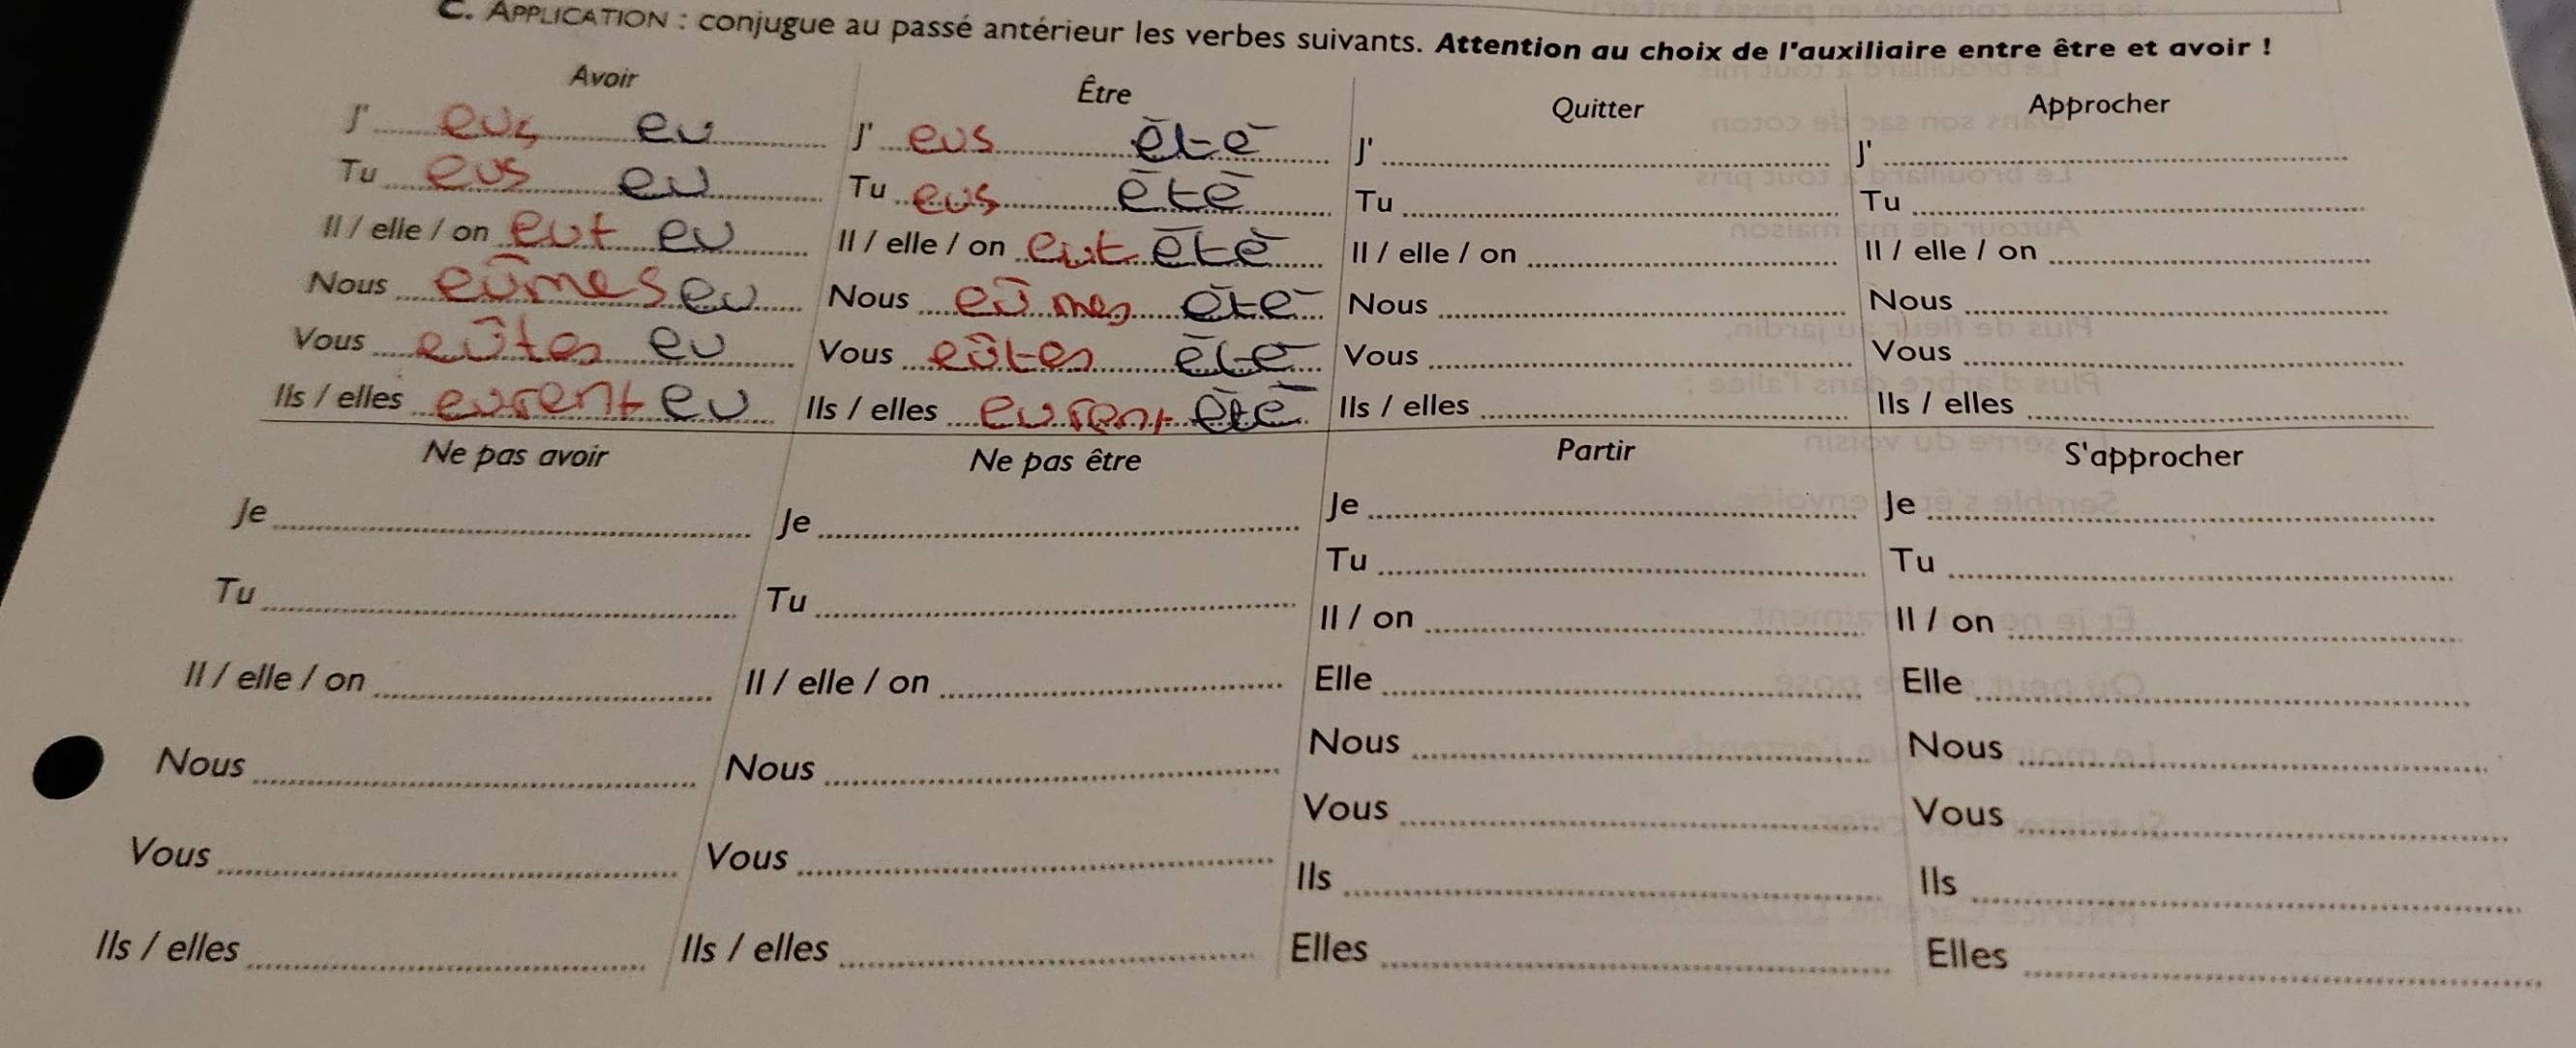 C. APPLICATION : conjugue au passé antérieur les verbes suivants. Attention au choix de l'auxiliaire entre être et avoir !
Avoir
J' eus eu
Tu eus eu
Il / elle / on eut eu
Nous eûmes eu
Vous eûtes eu
Ils / elles eurent eu
Être
J' eus été
Tu eus été
Il / elle / on eut été
Nous eûmes été
Vous eûtes été
Ils / elles eurent été
Quitter
J'
Tu
Il / elle / on
Nous
Vous
Ils / elles
Approcher
J'
Tu
Il / elle / on
Nous
Vous
Ils / elles
Ne pas avoir
Je
Tu
Il / elle / on
Nous
Vous
Ils / elles
Ne pas être
Je
Tu
Il / elle / on
Nous
Vous
Ils / elles
Partir
Je
Tu
Il / on
Elle
Nous
Vous
Ils
Elles
S'approcher
Je
Tu
Il / on
Elle
Nous
Vous
Ils
Elles